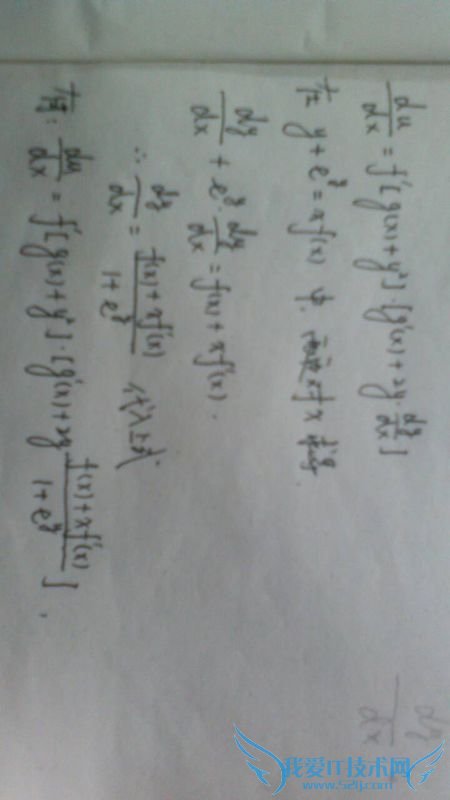 du/dx = f'[g(x)+y²]·[g'(x)+2y·dy/dx]
在 y+e^y=xf(x) 中. 两边对x求导.
dy/dx + e^y·dy/dx = f(x)+xf'(x).
∴ dy/dx = (f(x)+xf'(x))/(1+e^y) 代入上式
得: du/dx = f'[g(x)+y²]·[g'(x)+2y (f(x)+xf'(x))/(1+e^y)].
dy/dx
我爱IT技术网
www.52ij.com